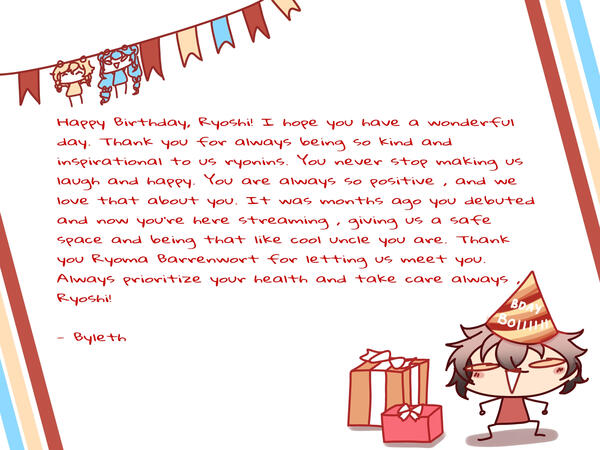 Happy Birthday, Ryoshi! I hope you have a wonderful
day. Thank you for always being so kind and
inspirational to us ryonins. You never stop making us
laugh and happy. You are always so positive , and we
love that about you. It was months ago you debuted
and now you're here streaming , giving us a safe
space and being that like cool uncle you are. Thank
you Ryoma Barrenwort for letting us meet you.
Always prioritize your health and take care always ,
Ryoshi!
- Byleth
BDAY
BOIIIII